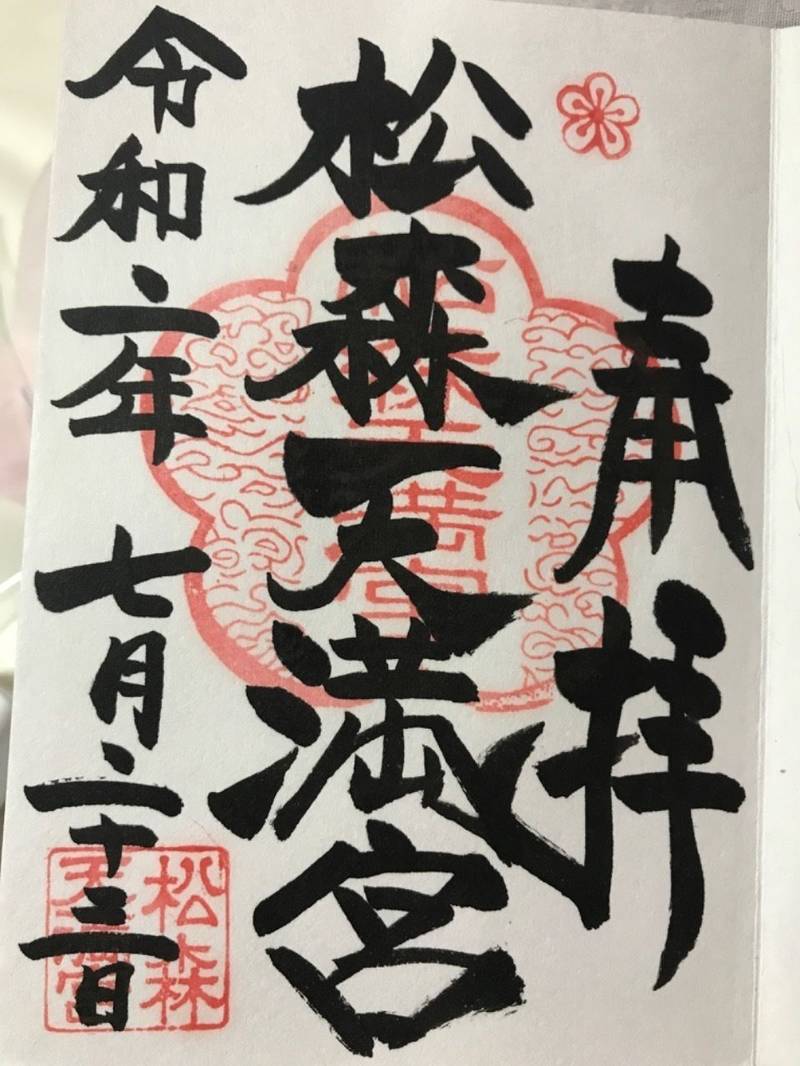 奉拝
松森天満宮
令和二年 七月二十三日
松森天満宮
松森天満宮